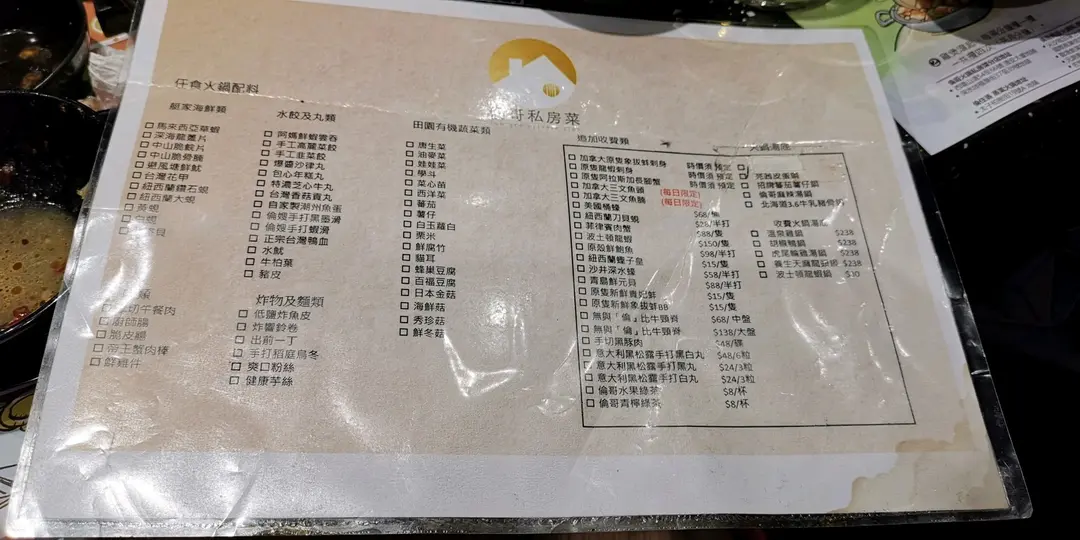 任食火鍋配料
哥私房菜
艇家海鮮類
馬來西亞草蝦
深海龍躉片
中山脆鯇片
中山脆骨腩
避風塘鮮魷
台灣花甲
紐西蘭鑽石蜆
紐西蘭大蜆
黃蜆
白蜆
切午餐肉
廚師腸
脆皮腸
帝王蟹肉棒
鮮雞件
水餃及丸類
阿媽鮮蝦雲吞
手工高麗菜餃
手工韭菜餃
爆醬沙律丸
包心年糕丸
特濃芝心牛丸
台灣香菇貢丸
自家製潮州魚蛋
倫嫂手打黑墨滑
倫嫂手打蝦滑
正宗台灣鴨血
水魷
牛柏葉
豬皮
炸物及麵類
低鹽炸魚皮
炸響鈴卷
出前一丁
手打稻庭烏冬
爽口粉絲
健康芋絲
田園有機蔬菜類
唐生菜
油麥菜
娃娃菜
學斗
菜心苗
西洋菜
蕃茄
薯仔
白玉蘿白
粟米
鮮腐竹
貓耳
蜂巢豆腐
百福豆腐
日本金菇
海鮮菇
秀珍菇
鮮冬菇
追加收費類
加拿大原隻象拔蚌刺身 時價須預定
原隻龍蝦刺身 時價須預定
原隻阿拉斯加長腳蟹 時價須預定
加拿大三文魚頭 (每日限定)
加拿大三文魚腩 (每日限定)
美國桶蠔
紐西蘭刀貝蜆 $68/
菲律賓肉蟹 $28/半打
波士頓龍蝦 $88/隻
原殼鮮鮑魚 $150/隻
紐西蘭蟶子皇 $98/半打
沙井深水蠔 $15/隻
青島鮮元貝 $58/半打
原隻新鮮貴妃蚌 $88/半打
原隻新鮮象拔蚌BB $15/隻
無與「倫」比牛頸脊 $68/中盤
無與「倫」比牛頸脊 $138/大盤
手切黑豚肉 $48/碟
意大利黑松露手打黑白丸 $48/6粒
意大利黑松露手打黑丸 $24/3粒
意大利黑松露手打白丸 $24/3粒
倫哥水果綠茶 $8/杯
倫哥青檸綠茶 $8/杯
火鍋湯底
芫茜皮蛋鍋
招牌蕃茄薯仔鍋
倫哥麻辣湯鍋
北海道3.6牛乳豬骨
收費火鍋湯底
溫泉雞鍋 $238
胡椒鴨鍋 $238
虎尾輪雞湯鍋 $238
養生天麻龍 $238
波士頓龍蝦鍋